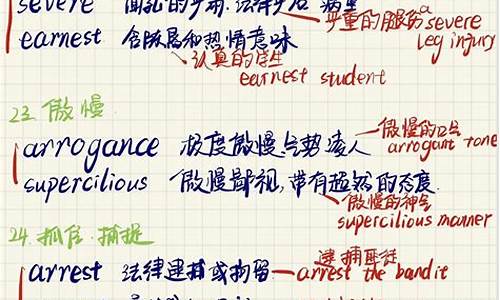 severe 严重的服伤 a severe leg injury
earnest 含殷局和热情意味
认真的学生
earnest student
23. 傲慢
傲慢的口气
arrogance 极度傲慢,气势凌人 arrogant tone
supercilious 傲慢鄙视,带有超然的态度
傲慢的神气
supercilious manner
24. 抓住.捕捉
逮捕匪徒
arrest 法律逮捕或拘留 arrest the bandit